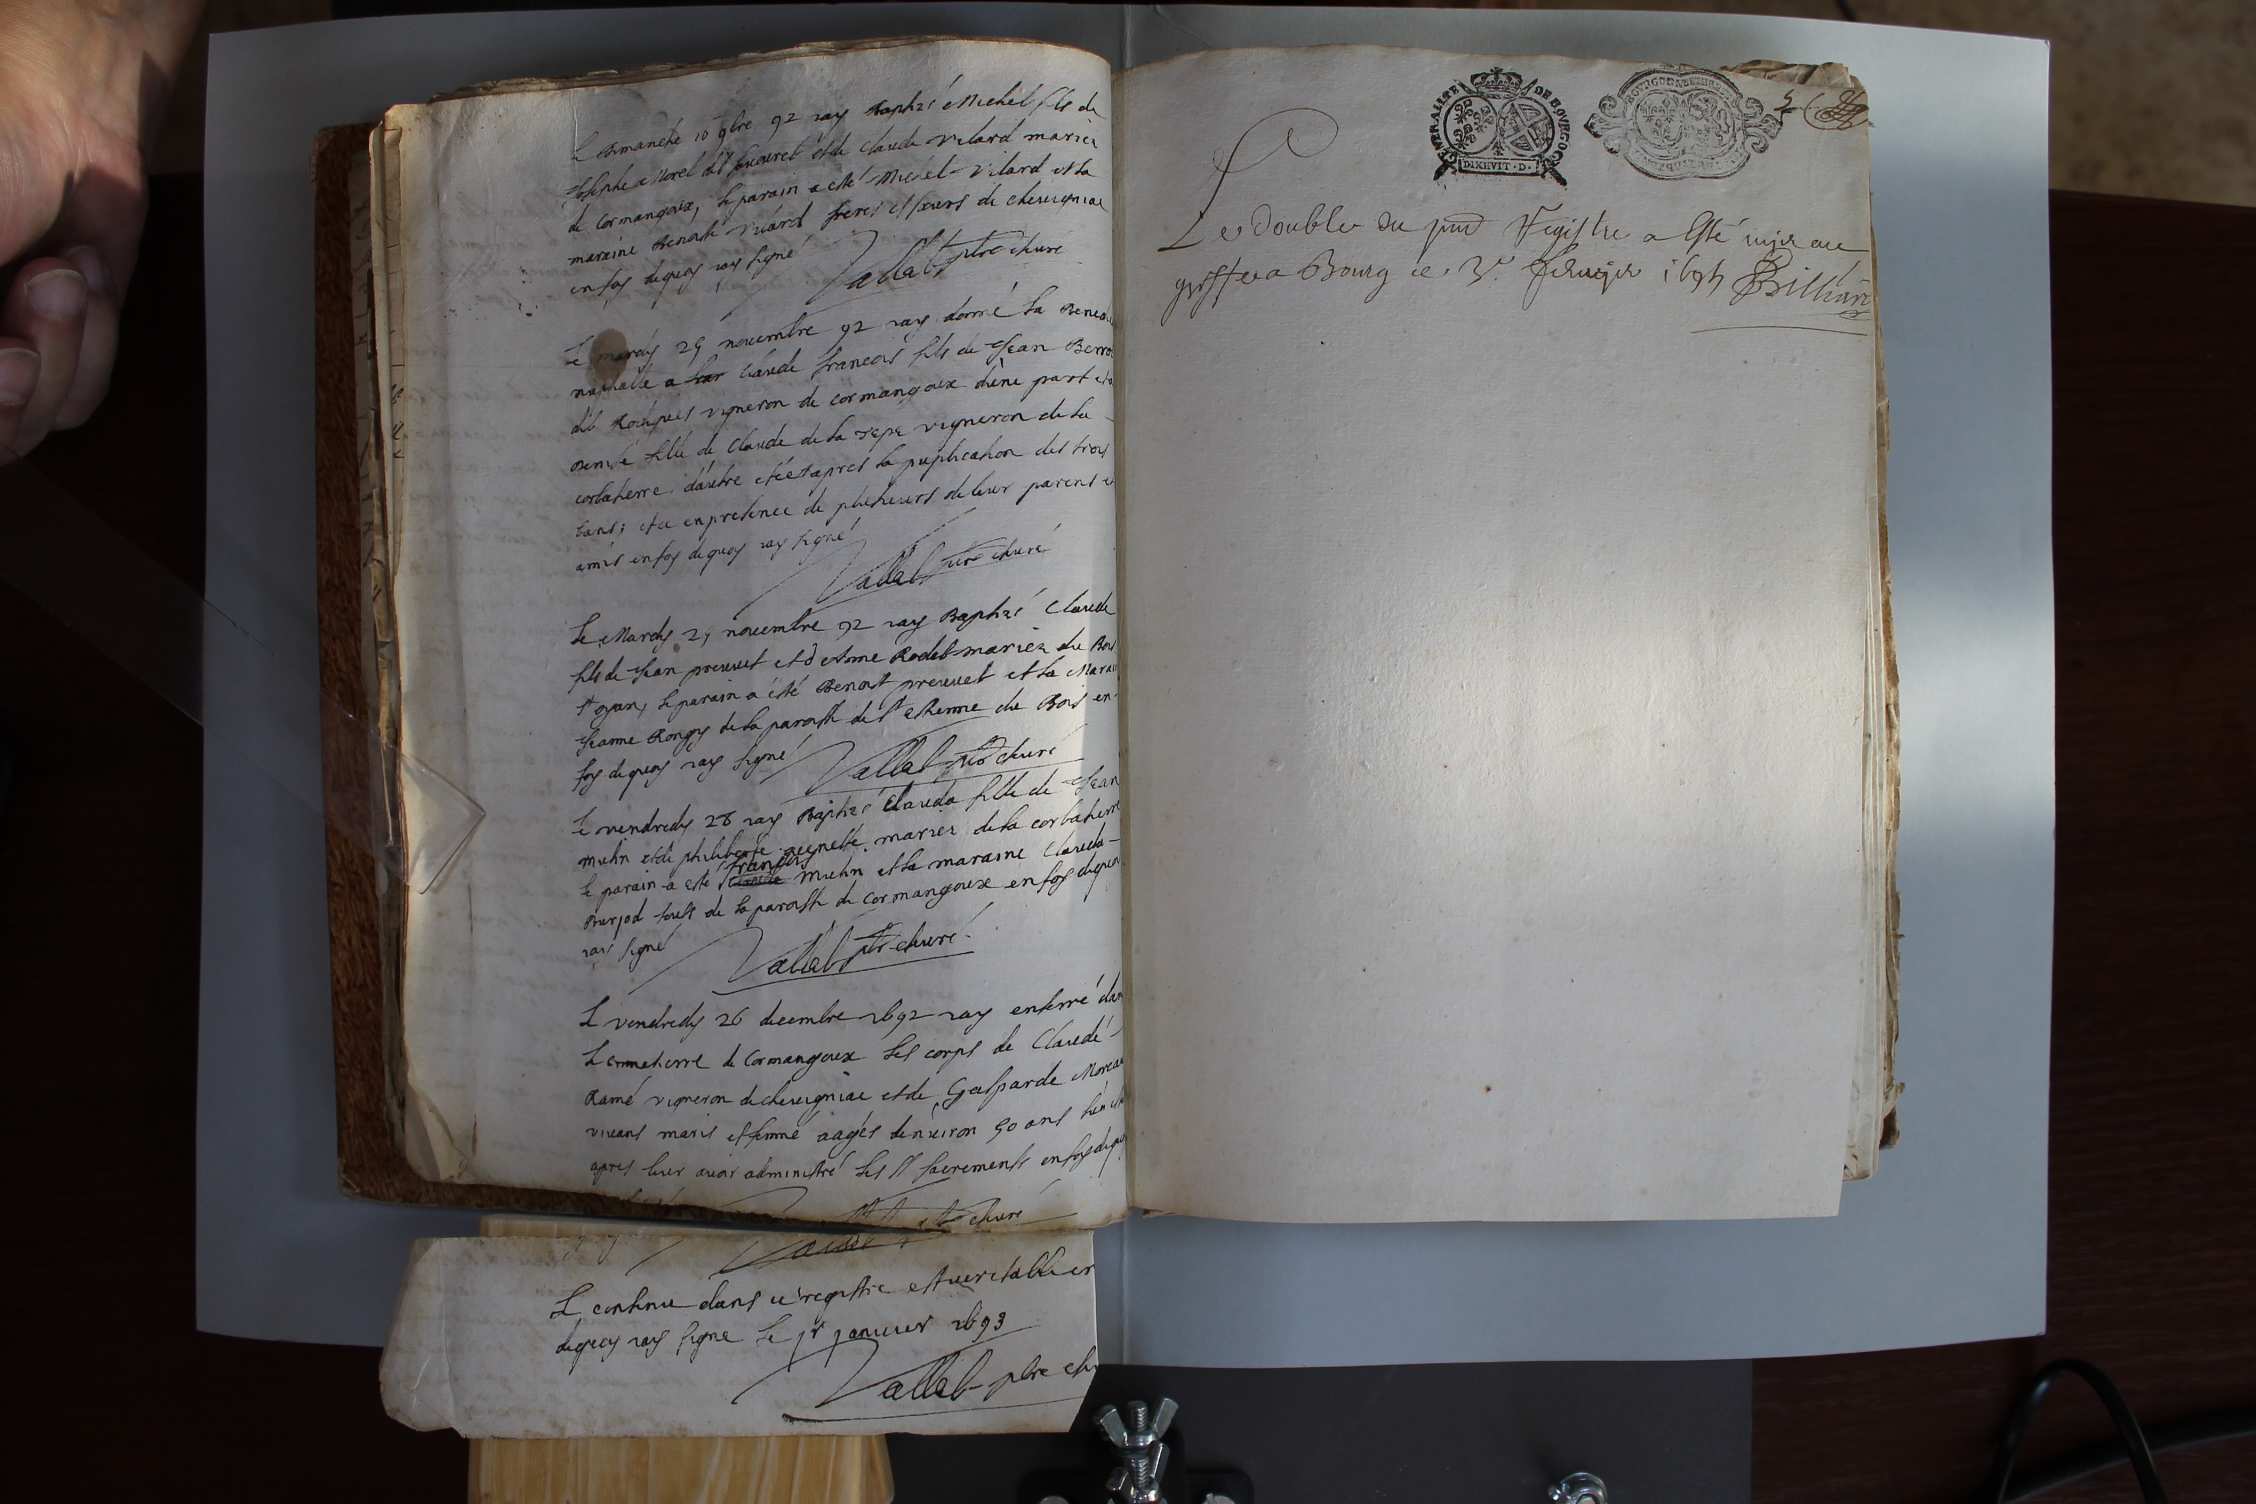 Le dimanche 10 9bre 92 iay Baptzé Michel fils de
Josephe Morel dit et de Claude Vilard mariez
de Cormangoux, le parain a esté Michel Vilard et la
maraine Benoite Vilard freres et soeurs de chevigniac
en foy dequoy iay signé Vallet ptre churé
Le mardy 25 novembre 92 iay donné la Bened
nuptialle a Claude francois fils de Jean
dit vigneron de cormangoux d'une part et a
fille de Claude de la vigneron de la
corbatierre d'autre et ce apres la puplication des trois
bans; et ce en presence de plusieurs de leur parens et
amis en foy dequoy iay signé
Vallet ptre churé
Le Mardy 25 novembre 92 iay Baptzé Claude
fils de Jean preuvet et d'Anne Rodet mariez du Bois
le parain a esté Benoit preuvet et la Marai
Jeanne Rongy de la paroisse de st Estienne du Bois en
foy dequoy iay signé Vallet ptre churé
Le vendredy 28 iay Baptzé Clauda fille de Jean
muhin et de philiberte mariez de la corbatierre
le parain a esté francois muhin et la maraine Clauda
Burjod tous de la paroisse de Cormangoux en foy dequoy
iay signé
Vallet ptre churé
Le vendredy 26 decembre 1692 iay enterré dan
le cimetierre de Cormangoux les corps de Claude
Ramé vigneron de chevigniac et de Gasparde Moreau
vivans maris et femme aagés d'environ 50 ans
apres leur avoir administré les st sacrements en foy dequoy
Vallet ptre churé
Le contenu dans ce registre est veritable en
dequoy iay signe le 1r janvier 1693
Vallet ptre chu
GENERALITE DE BOURGOG
DIXHVIT · D ·
Les double du pnt Registre a Esté mis au
greffe a Bourg ce 3e febvrier Brilliard